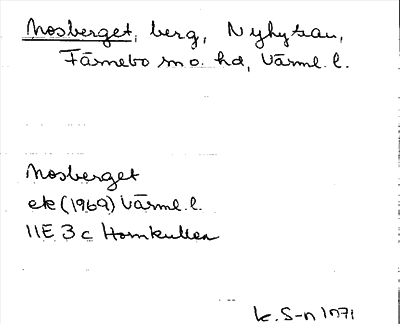 Mosberget, berg, Nyhyttan,
Färnebo sn o. hd, Värml. l.
Mosberget
ek (1969) Värml. l.
11E 3 c Hornkullen
k. S-n 1971